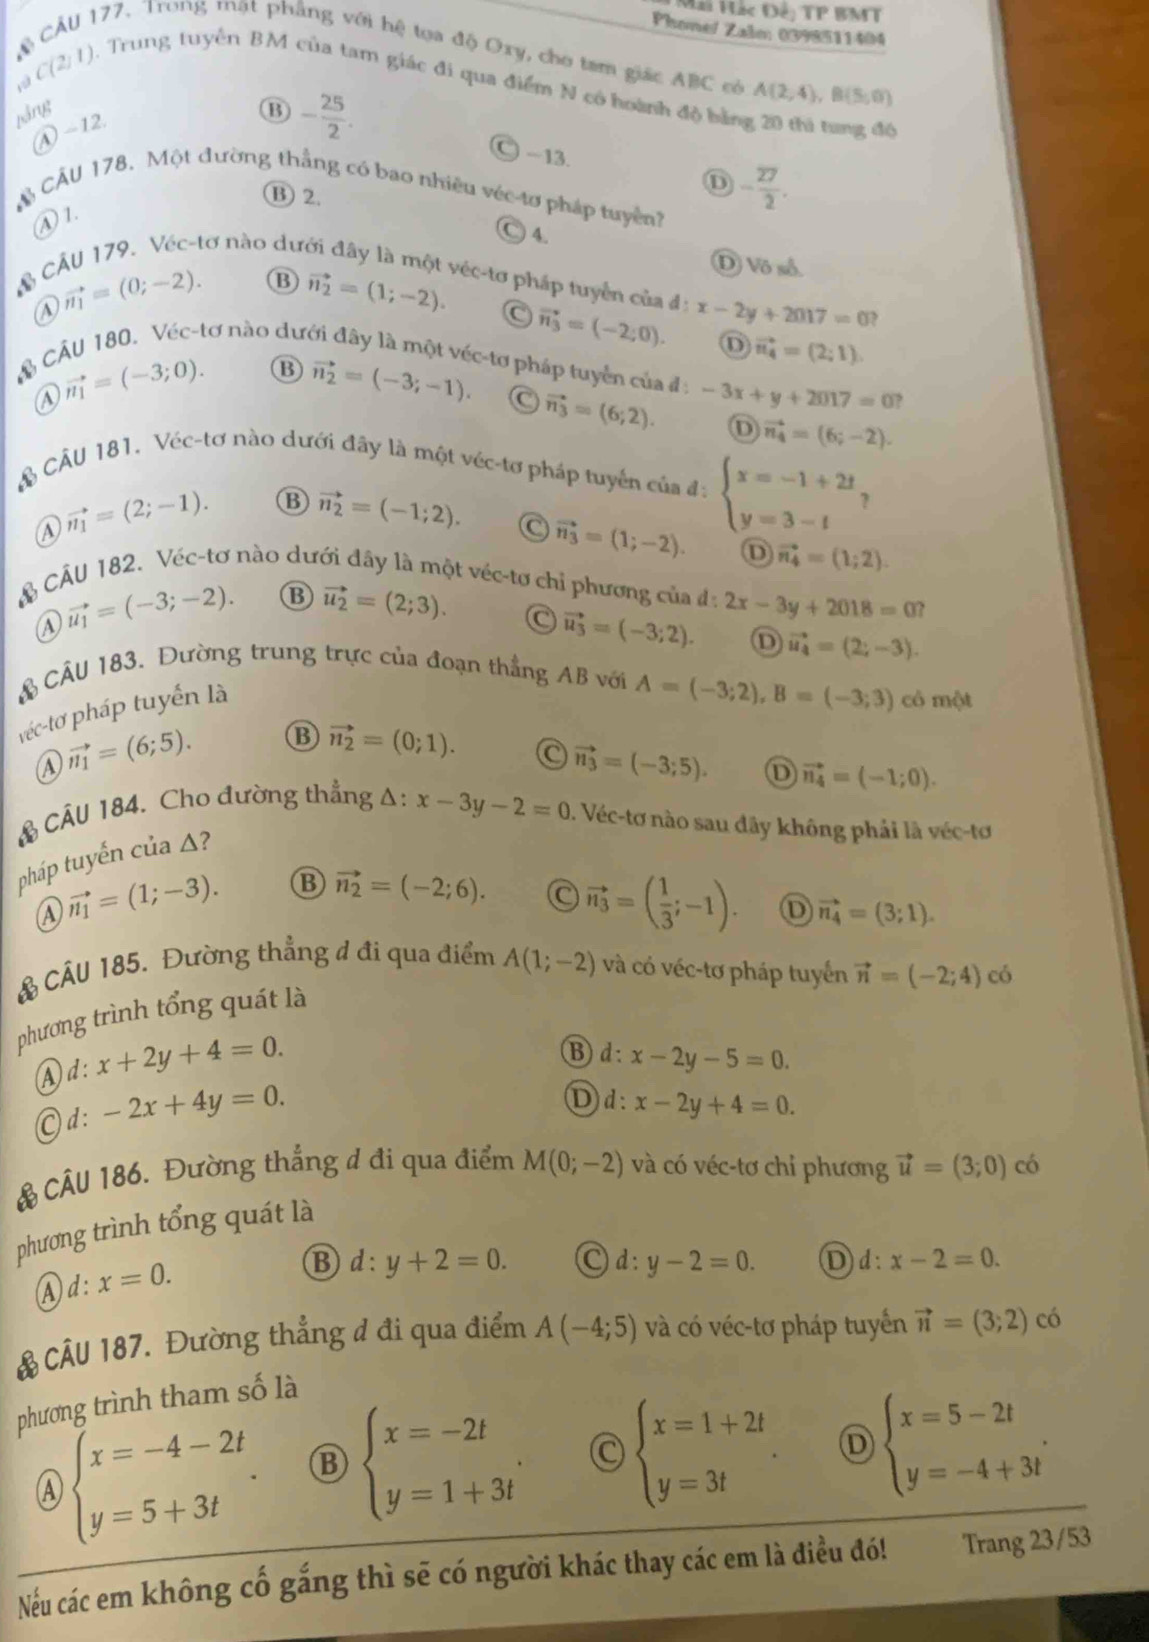 Mai Hắc Đế, TP BMT
Phome/ Zalo: 0398511404
CÂU 177. Trong mặt phẳng với hệ tọa độ Oxy, cho tam giác ABC có A(2;4), B(5;0)
và C(2;1). Trung tuyến BM của tam giác đi qua điểm N có hoành độ bằng 20 thì tung độ
bằng
A −12. B −25/2. C −13. D −27/2.
CÂU 178. Một đường thẳng có bao nhiêu véc-tơ pháp tuyến?
A 1. B 2. C 4. D Vô số.
CÂU 179. Véc-tơ nào dưới đây là một véc-tơ pháp tuyến của d: x − 2y + 2017 = 0?
A n₁⃗ = (0; −2). B n₂⃗ = (1; −2). C n₃⃗ = (−2; 0). D n₄⃗ = (2; 1).
CÂU 180. Véc-tơ nào dưới đây là một véc-tơ pháp tuyến của d: −3x + y + 2017 = 0?
A n₁⃗ = (−3; 0). B n₂⃗ = (−3; −1). C n₃⃗ = (6; 2). D n₄⃗ = (6; −2).
CÂU 181. Véc-tơ nào dưới đây là một véc-tơ pháp tuyến của d: { x = −1 + 2t
y = 3 − t ?
A n₁⃗ = (2; −1). B n₂⃗ = (−1; 2). C n₃⃗ = (1; −2). D n₄⃗ = (1; 2).
CÂU 182. Véc-tơ nào dưới đây là một véc-tơ chỉ phương của d: 2x − 3y + 2018 = 0?
A u₁⃗ = (−3; −2). B u₂⃗ = (2; 3). C u₃⃗ = (−3; 2). D u₄⃗ = (2; −3).
CÂU 183. Đường trung trực của đoạn thẳng AB với A = (−3; 2), B = (−3; 3) có một
véc-tơ pháp tuyến là
A n₁⃗ = (6; 5). B n₂⃗ = (0; 1). C n₃⃗ = (−3; 5). D n₄⃗ = (−1; 0).
CÂU 184. Cho đường thẳng Δ: x − 3y − 2 = 0. Véc-tơ nào sau đây không phải là véc-tơ
pháp tuyến của Δ?
A n₁⃗ = (1; −3). B n₂⃗ = (−2; 6). C n₃⃗ = (1/3; −1). D n₄⃗ = (3; 1).
CÂU 185. Đường thẳng d đi qua điểm A(1; −2) và có véc-tơ pháp tuyến n⃗ = (−2; 4) có
phương trình tổng quát là
A d: x + 2y + 4 = 0. B d: x − 2y − 5 = 0.
C d: −2x + 4y = 0. D d: x − 2y + 4 = 0.
CÂU 186. Đường thẳng d đi qua điểm M(0; −2) và có véc-tơ chỉ phương u⃗ = (3; 0) có
phương trình tổng quát là
A d: x = 0. B d: y + 2 = 0. C d: y − 2 = 0. D d: x − 2 = 0.
CÂU 187. Đường thẳng d đi qua điểm A (−4; 5) và có véc-tơ pháp tuyến n⃗ = (3; 2) có
phương trình tham số là
A { x = −4 − 2t B { x = −2t C { x = 1 + 2t D { x = 5 − 2t
y = 5 + 3t . y = 1 + 3t . y = 3t . y = −4 + 3t .
Nếu các em không cố gắng thì sẽ có người khác thay các em là điều đó! Trang 23/53